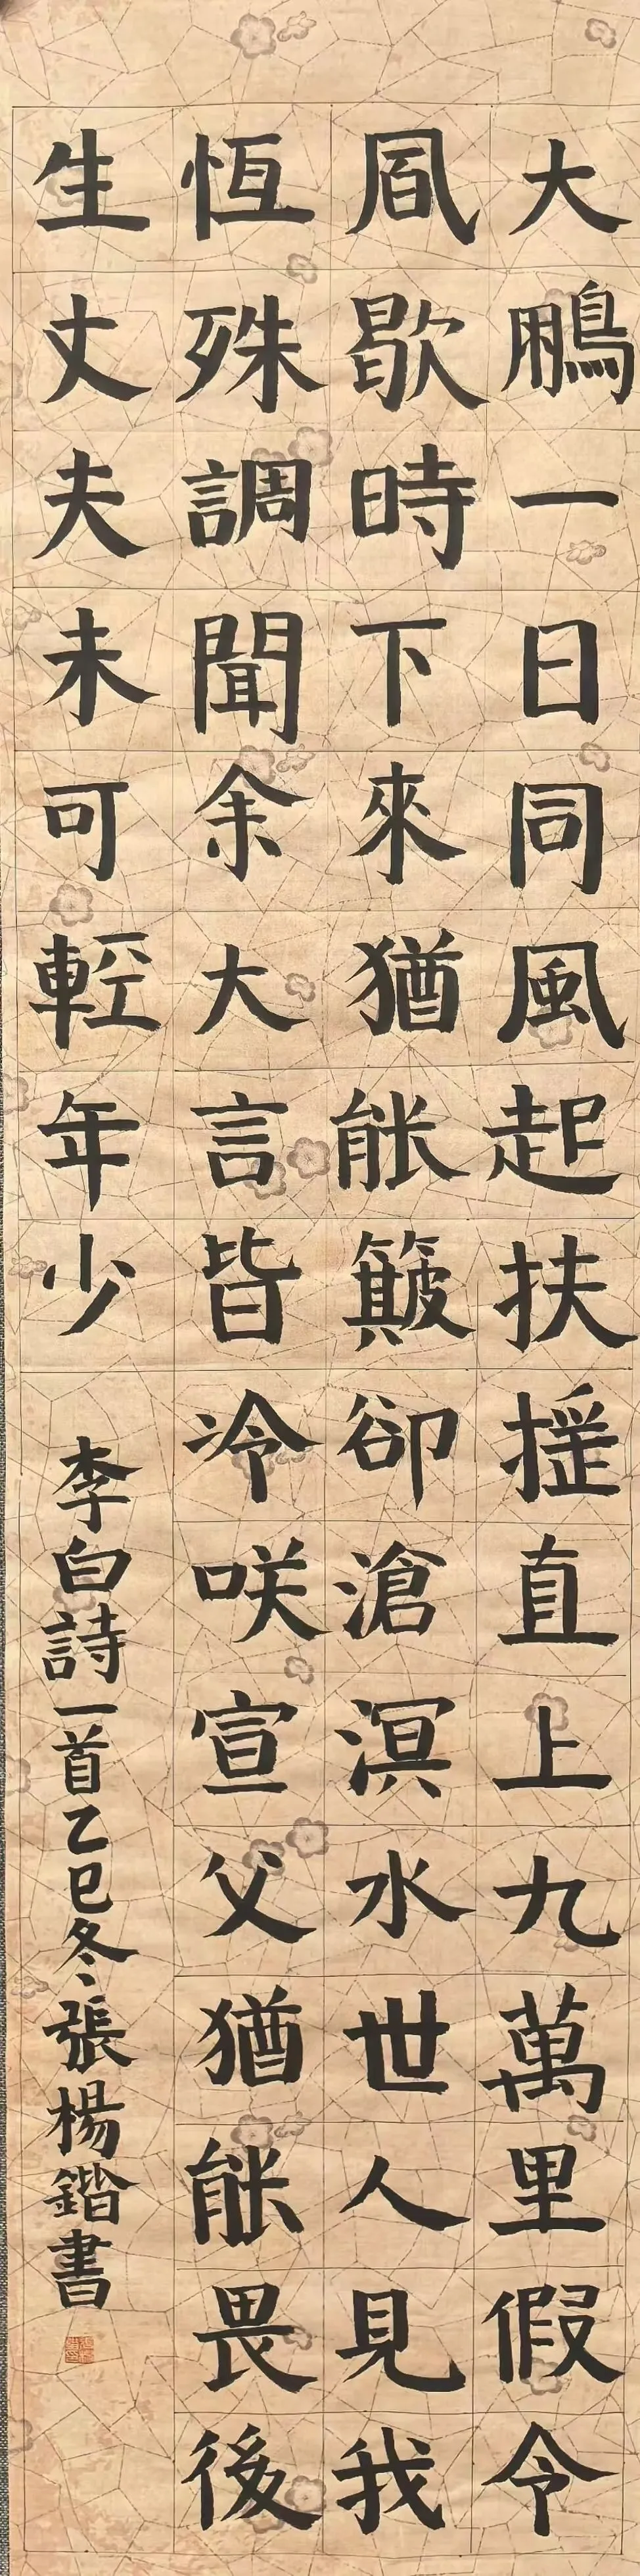 大鵬一日同風起扶搖直上九萬里假令
凮歇時下來猶能簸卻滄溟水世人見我
恆殊調聞余大言皆冷咲宣父猶能畏後
生丈夫未可輕年少
李白詩一首乙巳冬張楊鍇書